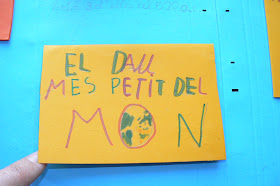 EL DAU
MES PETIT DEL
MON